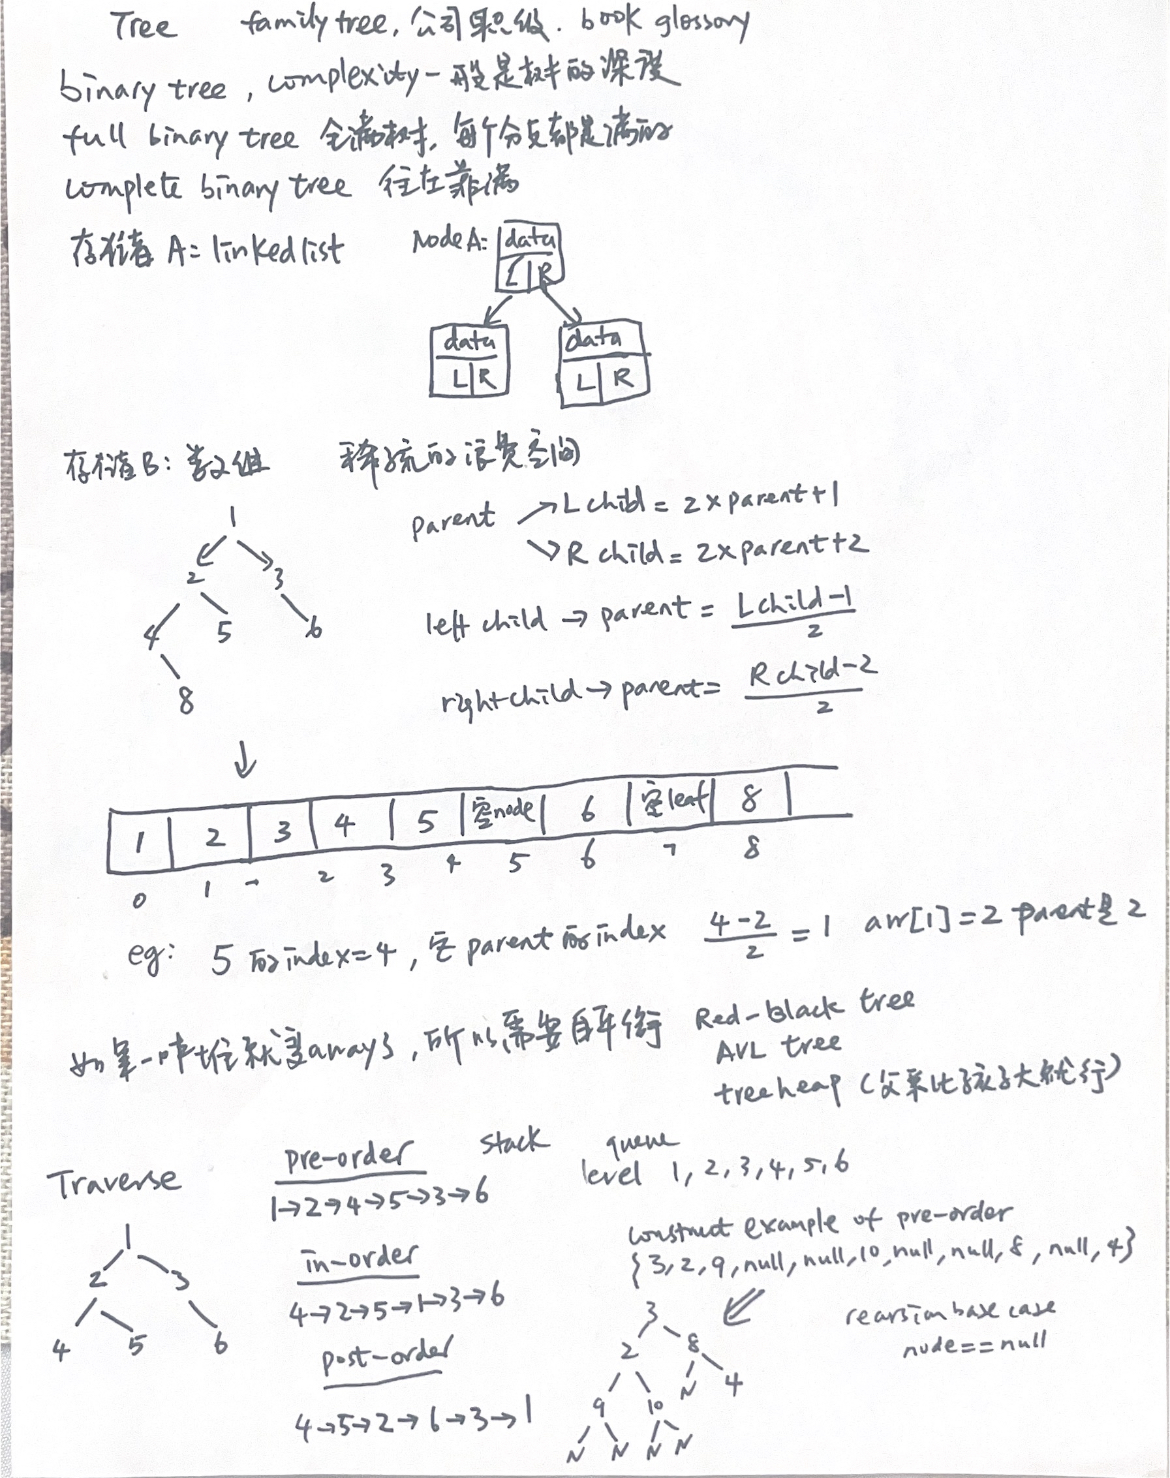 Tree family tree, 公司职级. book glossary
binary tree, complexity一般是树的深度
full binary tree 全满树, 每个分支都是满的
complete binary tree 往左靠满
A= linkedlist
Node A: data
L|R
data data
L|R L|R
B: 数组 稀疏的浪费空间
parent → Lchild = 2×parent+1
→ R child = 2×parent+2
1
2 3
4 5 6
8
left child → parent = Lchild-1 / 2
right child → parent = R child-2 / 2
↓
1 | 2 | 3 | 4 | 5 | 空node | 6 | 空leaf | 8 |
0 1 - 2 3 4 5 6 7 8
eg: 5的index=4, 它parent的index 4-2 / 2 = 1 arr[1]=2 parent是2
如果一味往就变arrays, 所以需要自平衡 Red-black tree
AVL tree
treeheap (父亲比孩子大就行)
Traverse
pre-order stack queue
1→2→4→5→3→6 level 1,2,3,4,5,6
1
2 3
4 5 6
in-order
4→2→5→1→3→6
post-order
4→5→2→6→3→1
construct example of pre-order
{3,2,9,null,null,10,null,null,8,null,4}
3
2 8
9 10 N 4
N N N N
recursion base case
node==null